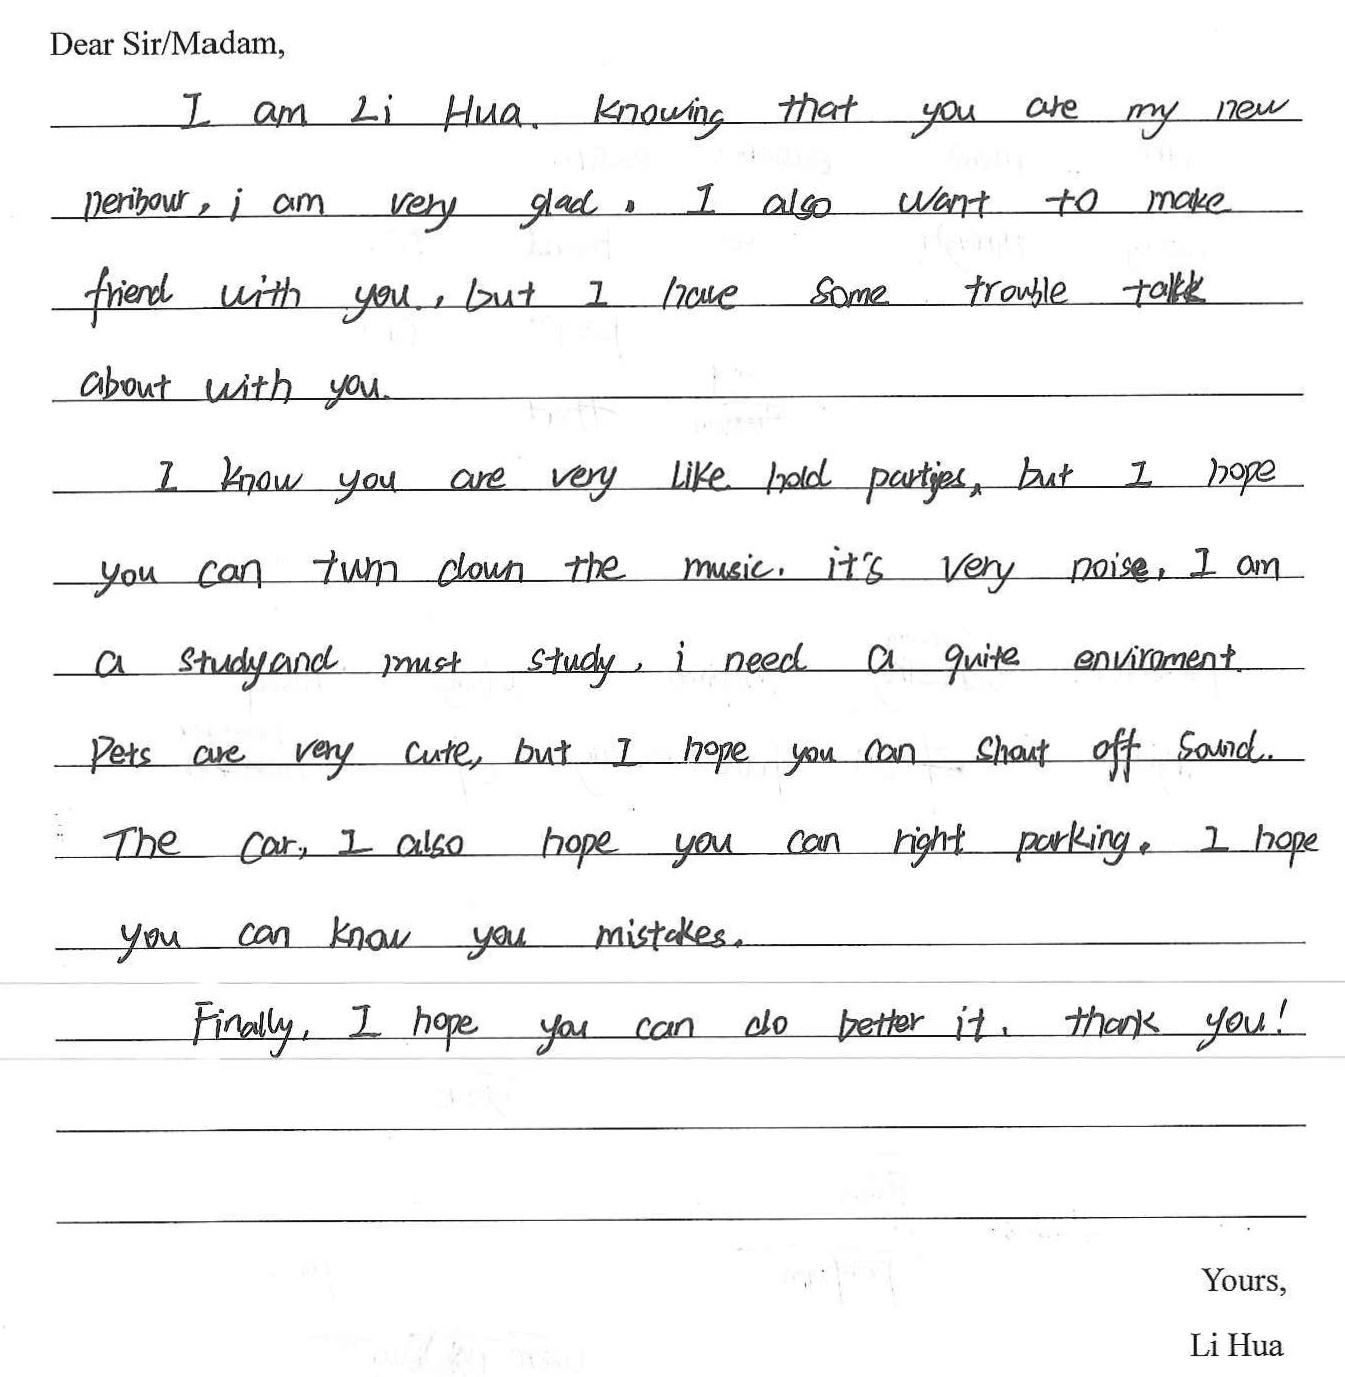 Dear Sir/Madam,
I am Li Hua. Knowing that you are my new
neribour, i am very glad. I also want to make
friend with you, but I have some trouble talk
about with you.
I know you are very like hold parties, but I hope
you can turn down the music. it's very noise, I am
a study and must study, i need a quite enviroment.
Pets are very cute, but I hope you can shout off sound.
The car, I also hope you can right parking. I hope
you can know you mistakes.
Finally, I hope you can do better it. thank you!
Yours,
Li Hua